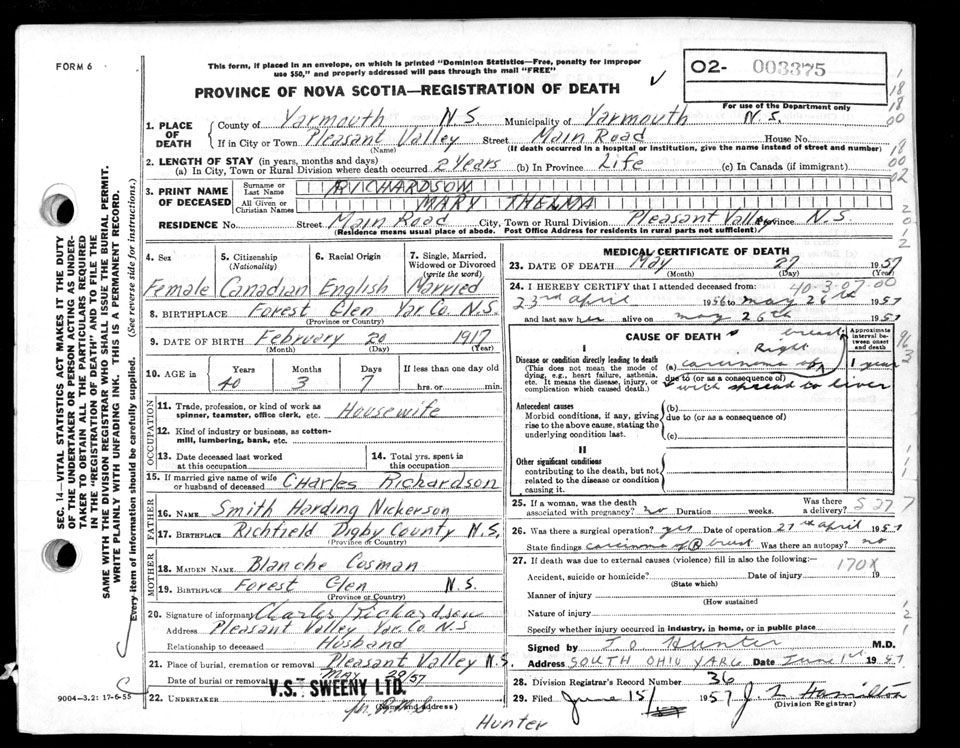 FORM 6
This form, if placed in an envelope, on which is printed "Dominion Statistics—Free, penalty for improper
use $50," and properly addressed will pass through the mail "FREE"
02- 003375
For use of the Department only
PROVINCE OF NOVA SCOTIA—REGISTRATION OF DEATH
1. PLACE OF DEATH
County of Yarmouth N.S. Municipality of Yarmouth N.S.
If in City or Town Pleasant Valley Street Main Road House No.
(Name) (If death occurred in a hospital or institution, give the name instead of street and number)
2. LENGTH OF STAY (in years, months and days)
(a) In City, Town or Rural Division where death occurred 2 Years (b) In Province Life (c) In Canada (if immigrant)
3. PRINT NAME OF DECEASED
Surname or Last Name RICHARDSON
All Given or Christian Names MARY THELMA
RESIDENCE No. Street Main Road City, Town or Rural Division Pleasant Valley Province N.S.
(Residence means usual place of abode. Post Office Address for residents in rural parts not sufficient)
4. Sex
Female
5. Citizenship (Nationality)
Canadian
6. Racial Origin
English
7. Single, Married, Widowed or Divorced (write the word)
Married
8. BIRTHPLACE Forest Glen Yar Co. N.S.
(Province or Country)
9. DATE OF BIRTH February 20 1917
(Month) (Day) (Year)
10. AGE in Years Months Days If less than one day old
40 3 7 hrs. or min.
OCCUPATION
11. Trade, profession, or kind of work as
spinner, teamster, office clerk, etc. Housewife
12. Kind of industry or business, as cotton-
mill, lumbering, bank, etc.
13. Date deceased last worked at this occupation
14. Total yrs. spent in this occupation
15. If married give name of wife
or husband of deceased Charles Richardson
FATHER
16. NAME Smith Harding Nickerson
17. BIRTHPLACE Richfield Digby County N.S.
(Province or Country)
MOTHER
18. MAIDEN NAME Blanche Cosman
19. BIRTHPLACE Forest Glen N.S.
(Province or Country)
20. Signature of informant Charles Richardson
Address Pleasant Valley Yar. Co. N.S
Relationship to deceased Husband
21. Place of burial, cremation or removal Pleasant Valley N.S.
Date of burial or removal May 29/57
22. UNDERTAKER V.S. SWEENY LTD.
(Name and address)
MEDICAL CERTIFICATE OF DEATH
23. DATE OF DEATH May 27 1957
(Month) (Day) (Year)
40-3-07-00
24. I HEREBY CERTIFY that I attended deceased from:
23rd april 1956 to may 26th 1957
and last saw her alive on may 26th 1957
CAUSE OF DEATH
Approximate interval between onset and death
I
Disease or condition directly leading to death
(This does not mean the mode of
dying, e.g., heart failure, asthenia,
etc. It means the disease, injury, or
complication which caused death.)
Right breast
(a) carcinoma of 1 year
due to (or as a consequence of)
with spread to liver
Antecedent causes
Morbid conditions, if any, giving
rise to the above cause, stating the
underlying condition last.
(b)
due to (or as a consequence of)
(c)
II
Other significant conditions
contributing to the death, but not
related to the disease or condition
causing it.
25. If a woman, was the death Was there
associated with pregnancy? no Duration weeks. a delivery?
26. Was there a surgical operation? yes Date of operation 27th april 1957
State findings carcinoma of (R) breast Was there an autopsy? no
27. If death was due to external causes (violence) fill in also the following:— 170X
Accident, suicide or homicide? Date of injury 19
(State which)
Manner of injury
(How sustained)
Nature of injury
Specify whether injury occurred in industry, in home, or in public place
Signed by Hunter M.D.
Address SOUTH OHIO YAR Co Date June 1st 1957
28. Division Registrar's Record Number 36
29. Filed June 15/ 1957 J. L. Hamilton
(Division Registrar)
Hunter
SEC. 14—VITAL STATISTICS ACT MAKES IT THE DUTY
OF THE UNDERTAKER OR PERSON ACTING AS UNDER-
TAKER TO OBTAIN ALL THE PARTICULARS REQUIRED
IN THE "REGISTRATION OF DEATH" AND TO FILE THE
SAME WITH THE DIVISION REGISTRAR WHO SHALL ISSUE THE BURIAL PERMIT.
WRITE PLAINLY WITH UNFADING INK. THIS IS A PERMANENT RECORD.
Every item of information should be carefully supplied. (See reverse side for instructions.)
9004-3.2: 17-6-55